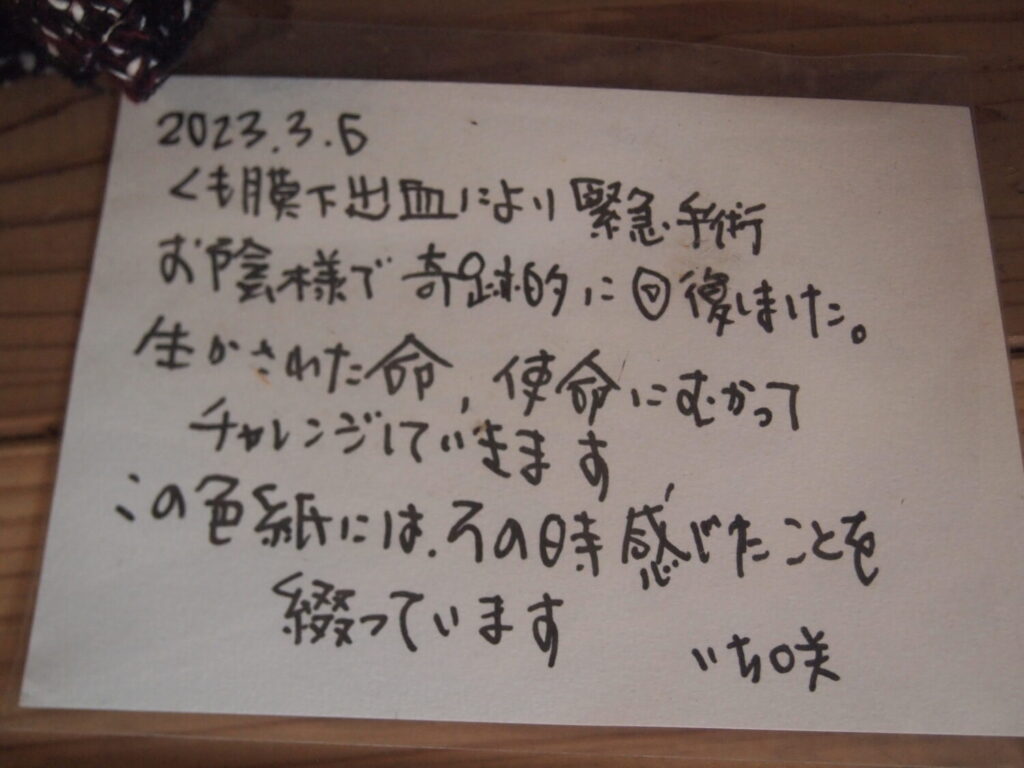 2023.3.6
くも膜下出血により緊急手術
お陰様で奇跡的に回復しました。
生かされた命、使命にむかって
チャレンジしていきます
この色紙には、その時感じたことを
綴っています
いち咲